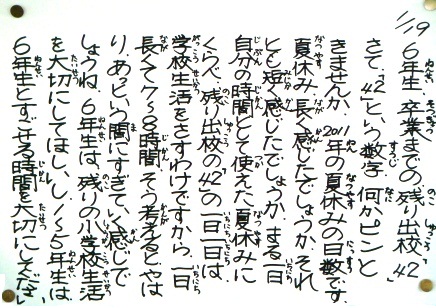 1/19
6年生、卒業までの残り出校"42"
さて、"42"という数字、何かピンと
きませんか。2011年の夏休みの日数です
夏休み、長く感じたでしょうか、それ
とも短く感じたでしょうか。まる一日
自分の時間として使えた夏休みに
くらべ、残り出校の"42"の一日一日は、
学校生活をさすわけですから、一日
長くて7〜8時間。そう考えると、やは
り、あっという間にすぎていく感じで
しょうね。6年生は、残りの小学校生活
を大切にしてほしいし、1〜5年生は、
6年生とすごせる時間を大切にしてください